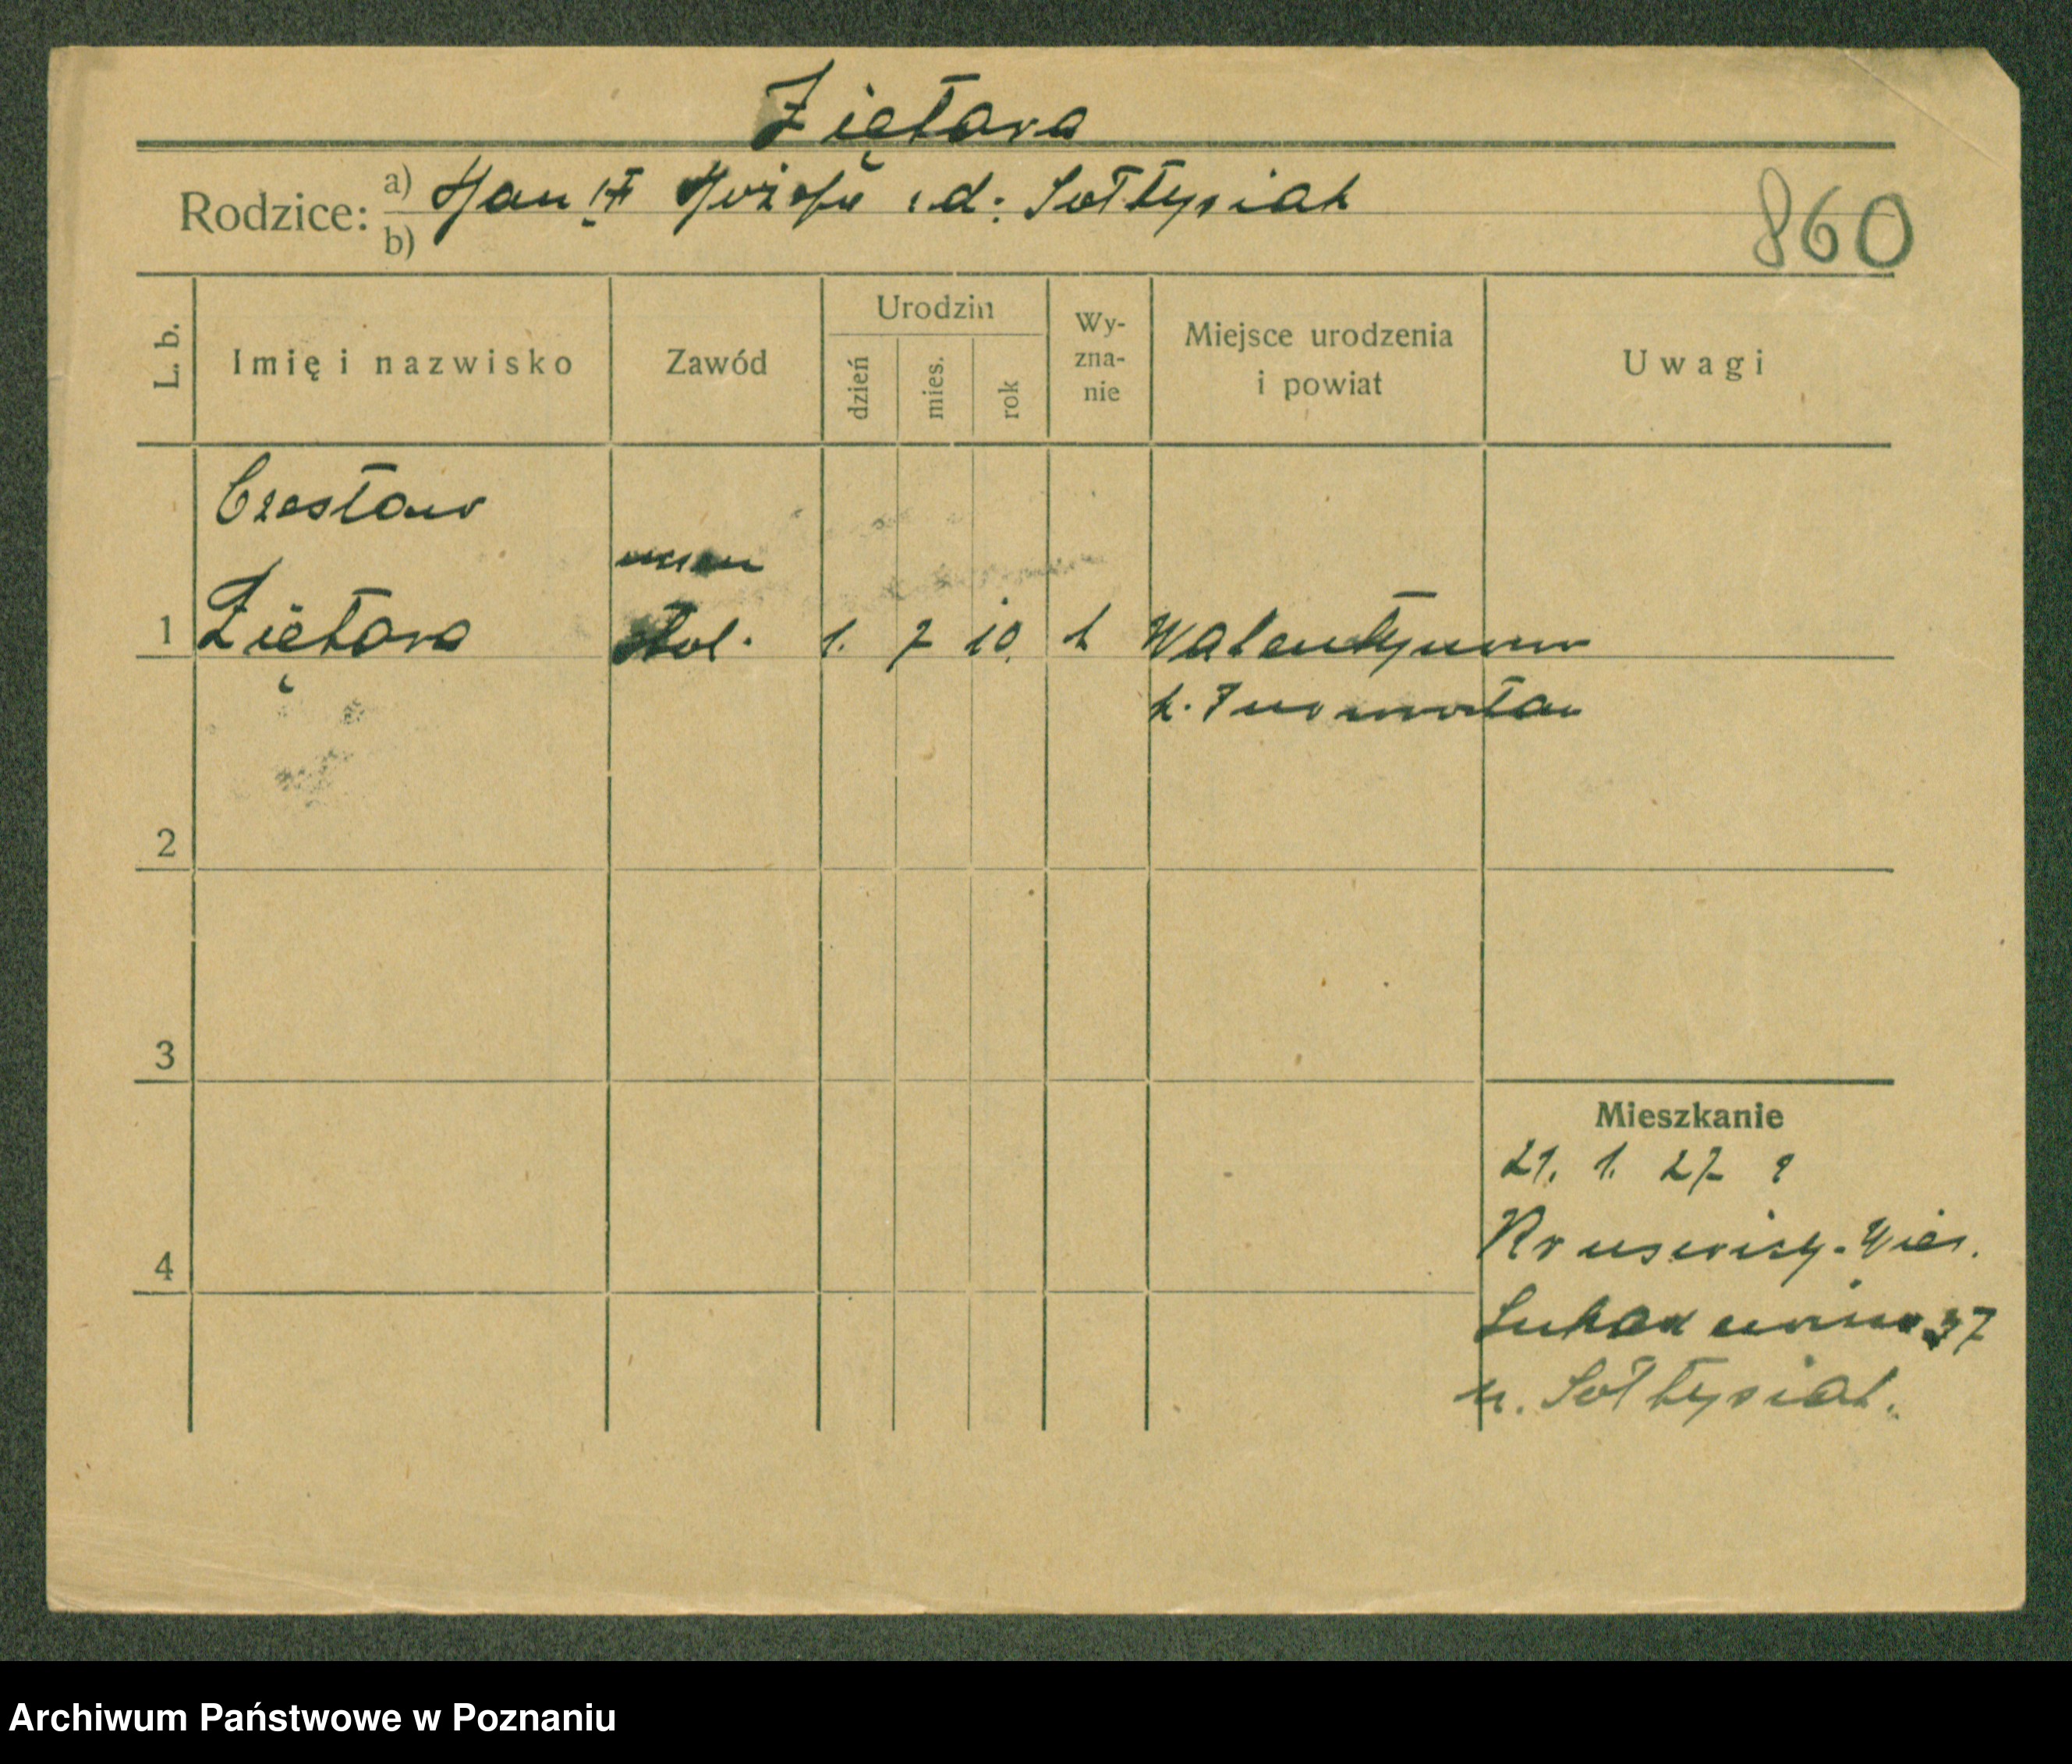 Ziętara
Rodzice: a) Jan i Józefa z d. Sołtysiak
b)
860
L. b. Imię i nazwisko Zawód Urodzin dzień mies. rok Wy-zna-nie Miejsce urodzenia i powiat Uwagi
Czesław
uczeń
1 Ziętara stol. 1. 7 10. k Walentynowo
k. Inowrocław
2
3
Mieszkanie
21. 1. 27
4
37
u. Sołtysiak.
Archiwum Państwowe w Poznaniu